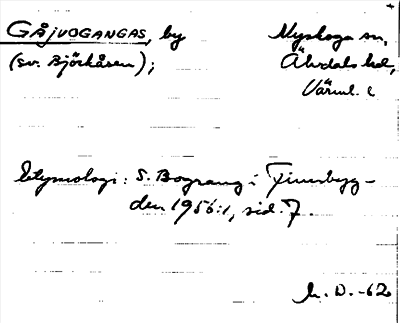 GÅJVOGANGAS, by Nyskoga sn,
(sv. Björkåsen); Älvdals hd,
Värml. l
Etymologi: S. Bograng i Finnbyg-
den 1956:1, sid. 7.
h. D. -62